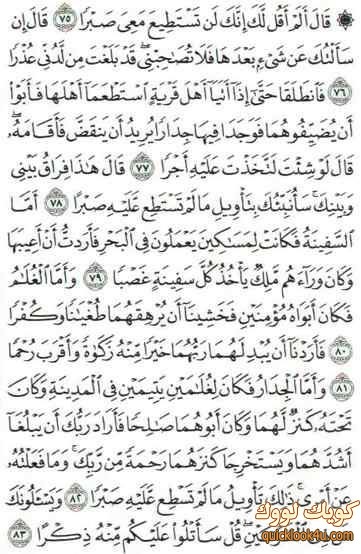 ۞ قَالَ أَلَمْ أَقُل لَّكَ إِنَّكَ لَن تَسْتَطِيعَ مَعِىَ صَبْرًا ٧٥ قَالَ إِن
سَأَلْتُكَ عَن شَىْءٍۭ بَعْدَهَا فَلَا تُصَـٰحِبْنِى ۖ قَدْ بَلَغْتَ مِن لَّدُنِّى عُذْرًا
٧٦ فَٱنطَلَقَا حَتَّىٰٓ إِذَآ أَتَيَآ أَهْلَ قَرْيَةٍ ٱسْتَطْعَمَآ أَهْلَهَا فَأَبَوْا۟
أَن يُضَيِّفُوهُمَا فَوَجَدَا فِيهَا جِدَارًا يُرِيدُ أَن يَنقَضَّ فَأَقَامَهُۥ ۖ
قَالَ لَوْ شِئْتَ لَتَّخَذْتَ عَلَيْهِ أَجْرًا ٧٧ قَالَ هَـٰذَا فِرَاقُ بَيْنِى
وَبَيْنِكَ ۚ سَأُنَبِّئُكَ بِتَأْوِيلِ مَا لَمْ تَسْتَطِع عَّلَيْهِ صَبْرًا ٧٨ أَمَّا
ٱلسَّفِينَةُ فَكَانَتْ لِمَسَـٰكِينَ يَعْمَلُونَ فِى ٱلْبَحْرِ فَأَرَدتُّ أَنْ أَعِيبَهَا
وَكَانَ وَرَآءَهُم مَّلِكٌ يَأْخُذُ كُلَّ سَفِينَةٍ غَصْبًا ٧٩ وَأَمَّا ٱلْغُلَـٰمُ
فَكَانَ أَبَوَاهُ مُؤْمِنَيْنِ فَخَشِينَآ أَن يُرْهِقَهُمَا طُغْيَـٰنًا وَكُفْرًا
٨٠ فَأَرَدْنَآ أَن يُبْدِلَهُمَا رَبُّهُمَا خَيْرًا مِّنْهُ زَكَوٰةً وَأَقْرَبَ رُحْمًا
٨١ وَأَمَّا ٱلْجِدَارُ فَكَانَ لِغُلَـٰمَيْنِ يَتِيمَيْنِ فِى ٱلْمَدِينَةِ وَكَانَ
تَحْتَهُۥ كَنزٌ لَّهُمَا وَكَانَ أَبُوهُمَا صَـٰلِحًا فَأَرَادَ رَبُّكَ أَن يَبْلُغَآ
أَشُدَّهُمَا وَيَسْتَخْرِجَا كَنزَهُمَا رَحْمَةً مِّن رَّبِّكَ ۚ وَمَا فَعَلْتُهُۥ
عَنْ أَمْرِى ۚ ذَٰلِكَ تَأْوِيلُ مَا لَمْ تَسْطِع عَّلَيْهِ صَبْرًا ٨٢ وَيَسْـَٔلُونَكَ
قُلْ سَأَتْلُوا۟ عَلَيْكُم مِّنْهُ ذِكْرًا ٨٣
كويك لووك
quicklook4u.com